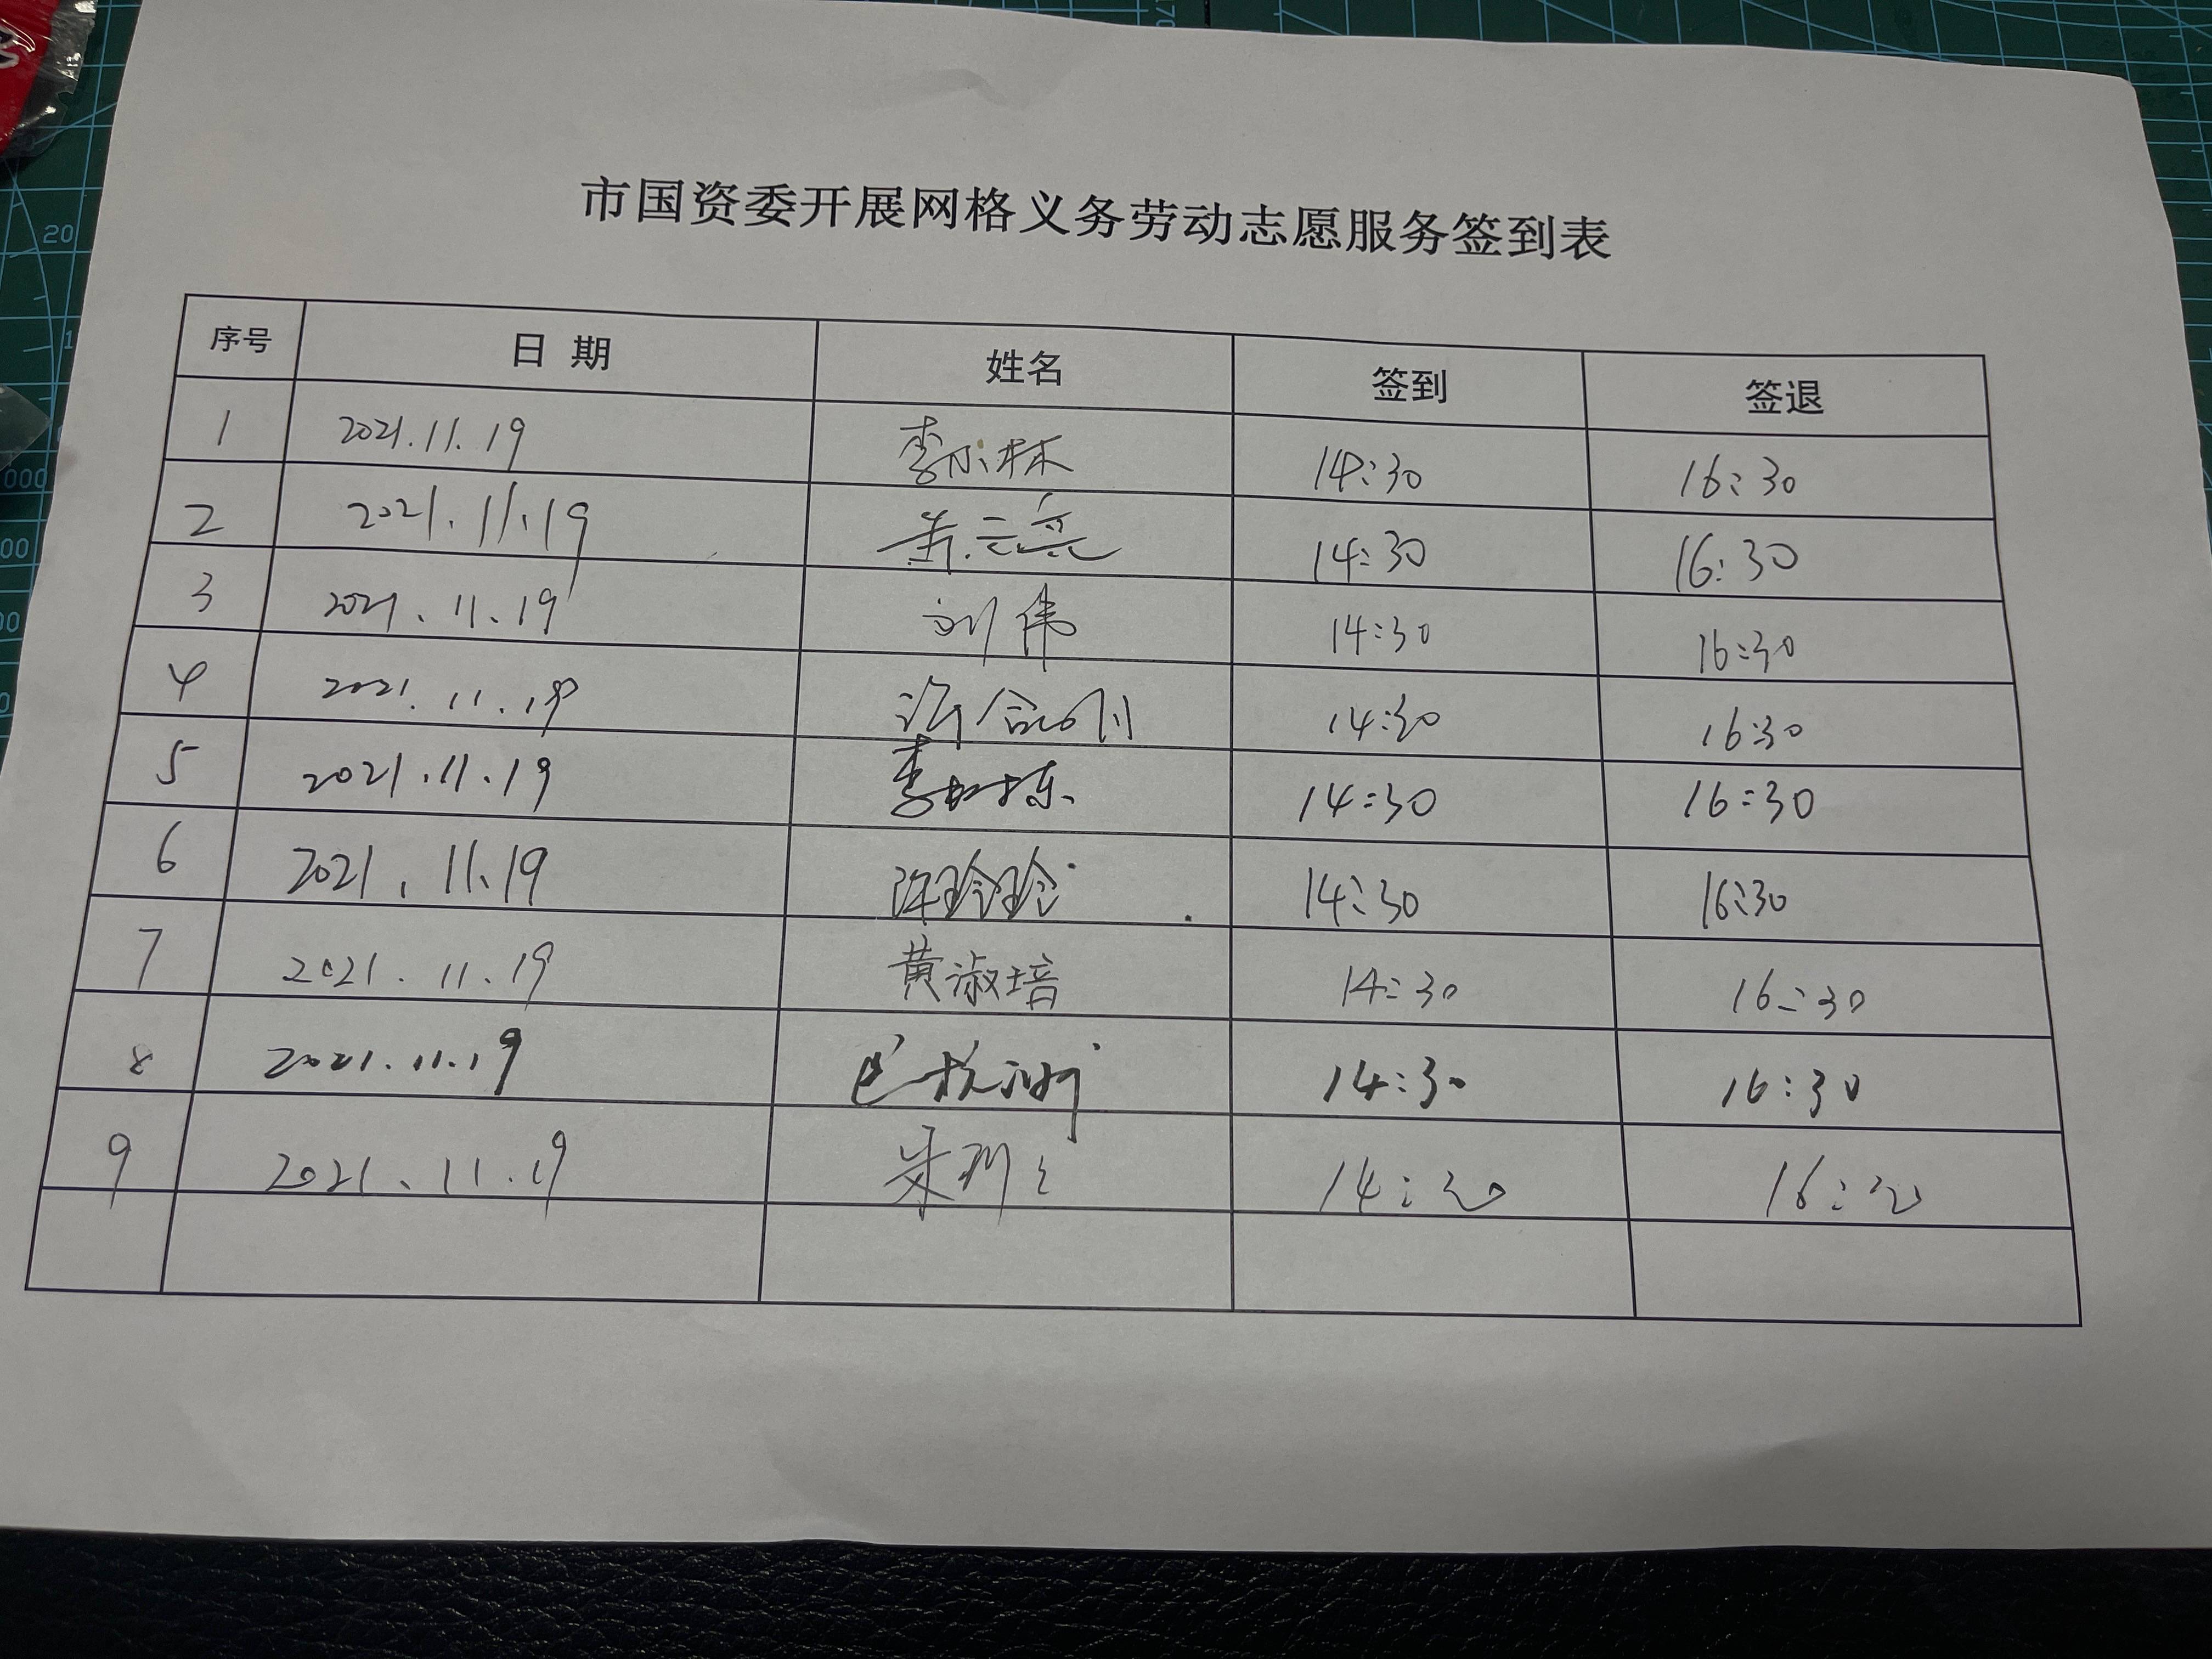 市国资委开展网格义务劳动志愿服务签到表
序号 日期 姓名 签到 签退
1 2021.11.19 14:30 16:30
2 2021.11.19 14:30 16:30
3 2021.11.19 刘伟 14:30 16:30
4 2021.11.19 14:30 16:30
5 2021.11.19 14:30 16:30
6 2021.11.19 许玲玲 14:30 16:30
7 2021.11.19 黄淑培 14:30 16:30
8 2021.11.19 14:30 16:30
9 2021.11.19 14:30 16:30